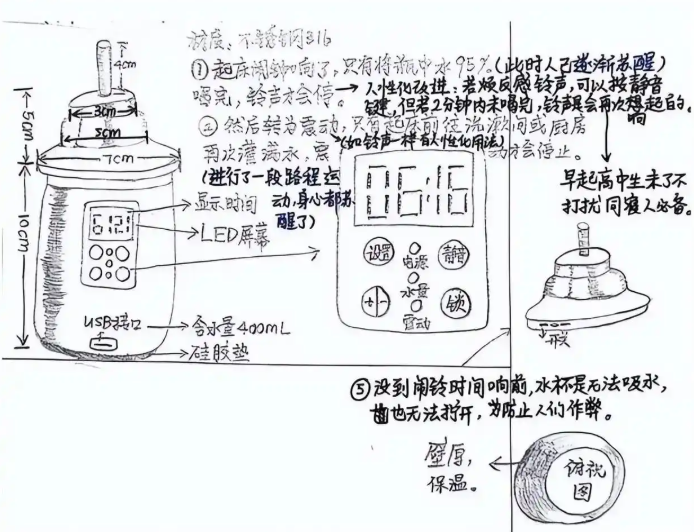 材质：不锈钢316
①起床闹钟响了，只有将瓶中水95%(此时人已逐渐苏醒)
喝完，铃声才会停。
→人性化改进：若烦反感铃声，可以按静音
键，但若2分钟内未喝完，铃声是会再次想起的。
响
②然后转为震动，只有起床前往洗漱间或厨房
再次灌满水，震动才会停止。
(如铃声一样有人性化用法)
(进行了一段路程运
动，身心都苏
醒了)
早起高中生来了不
打扰同寝人必备。
4cm
3cm
5cm
7cm
5cm
10cm
6121
显示时间
LED屏幕
USB接口
含水量400mL
硅胶垫
06:16
设置
静音
电源
水量
+/-
锁
震动
⑤没到闹铃时间响前，水杯是无法吸水，
也无法拧开，为防止人们作弊。
壁厚，
保温。
俯视
图